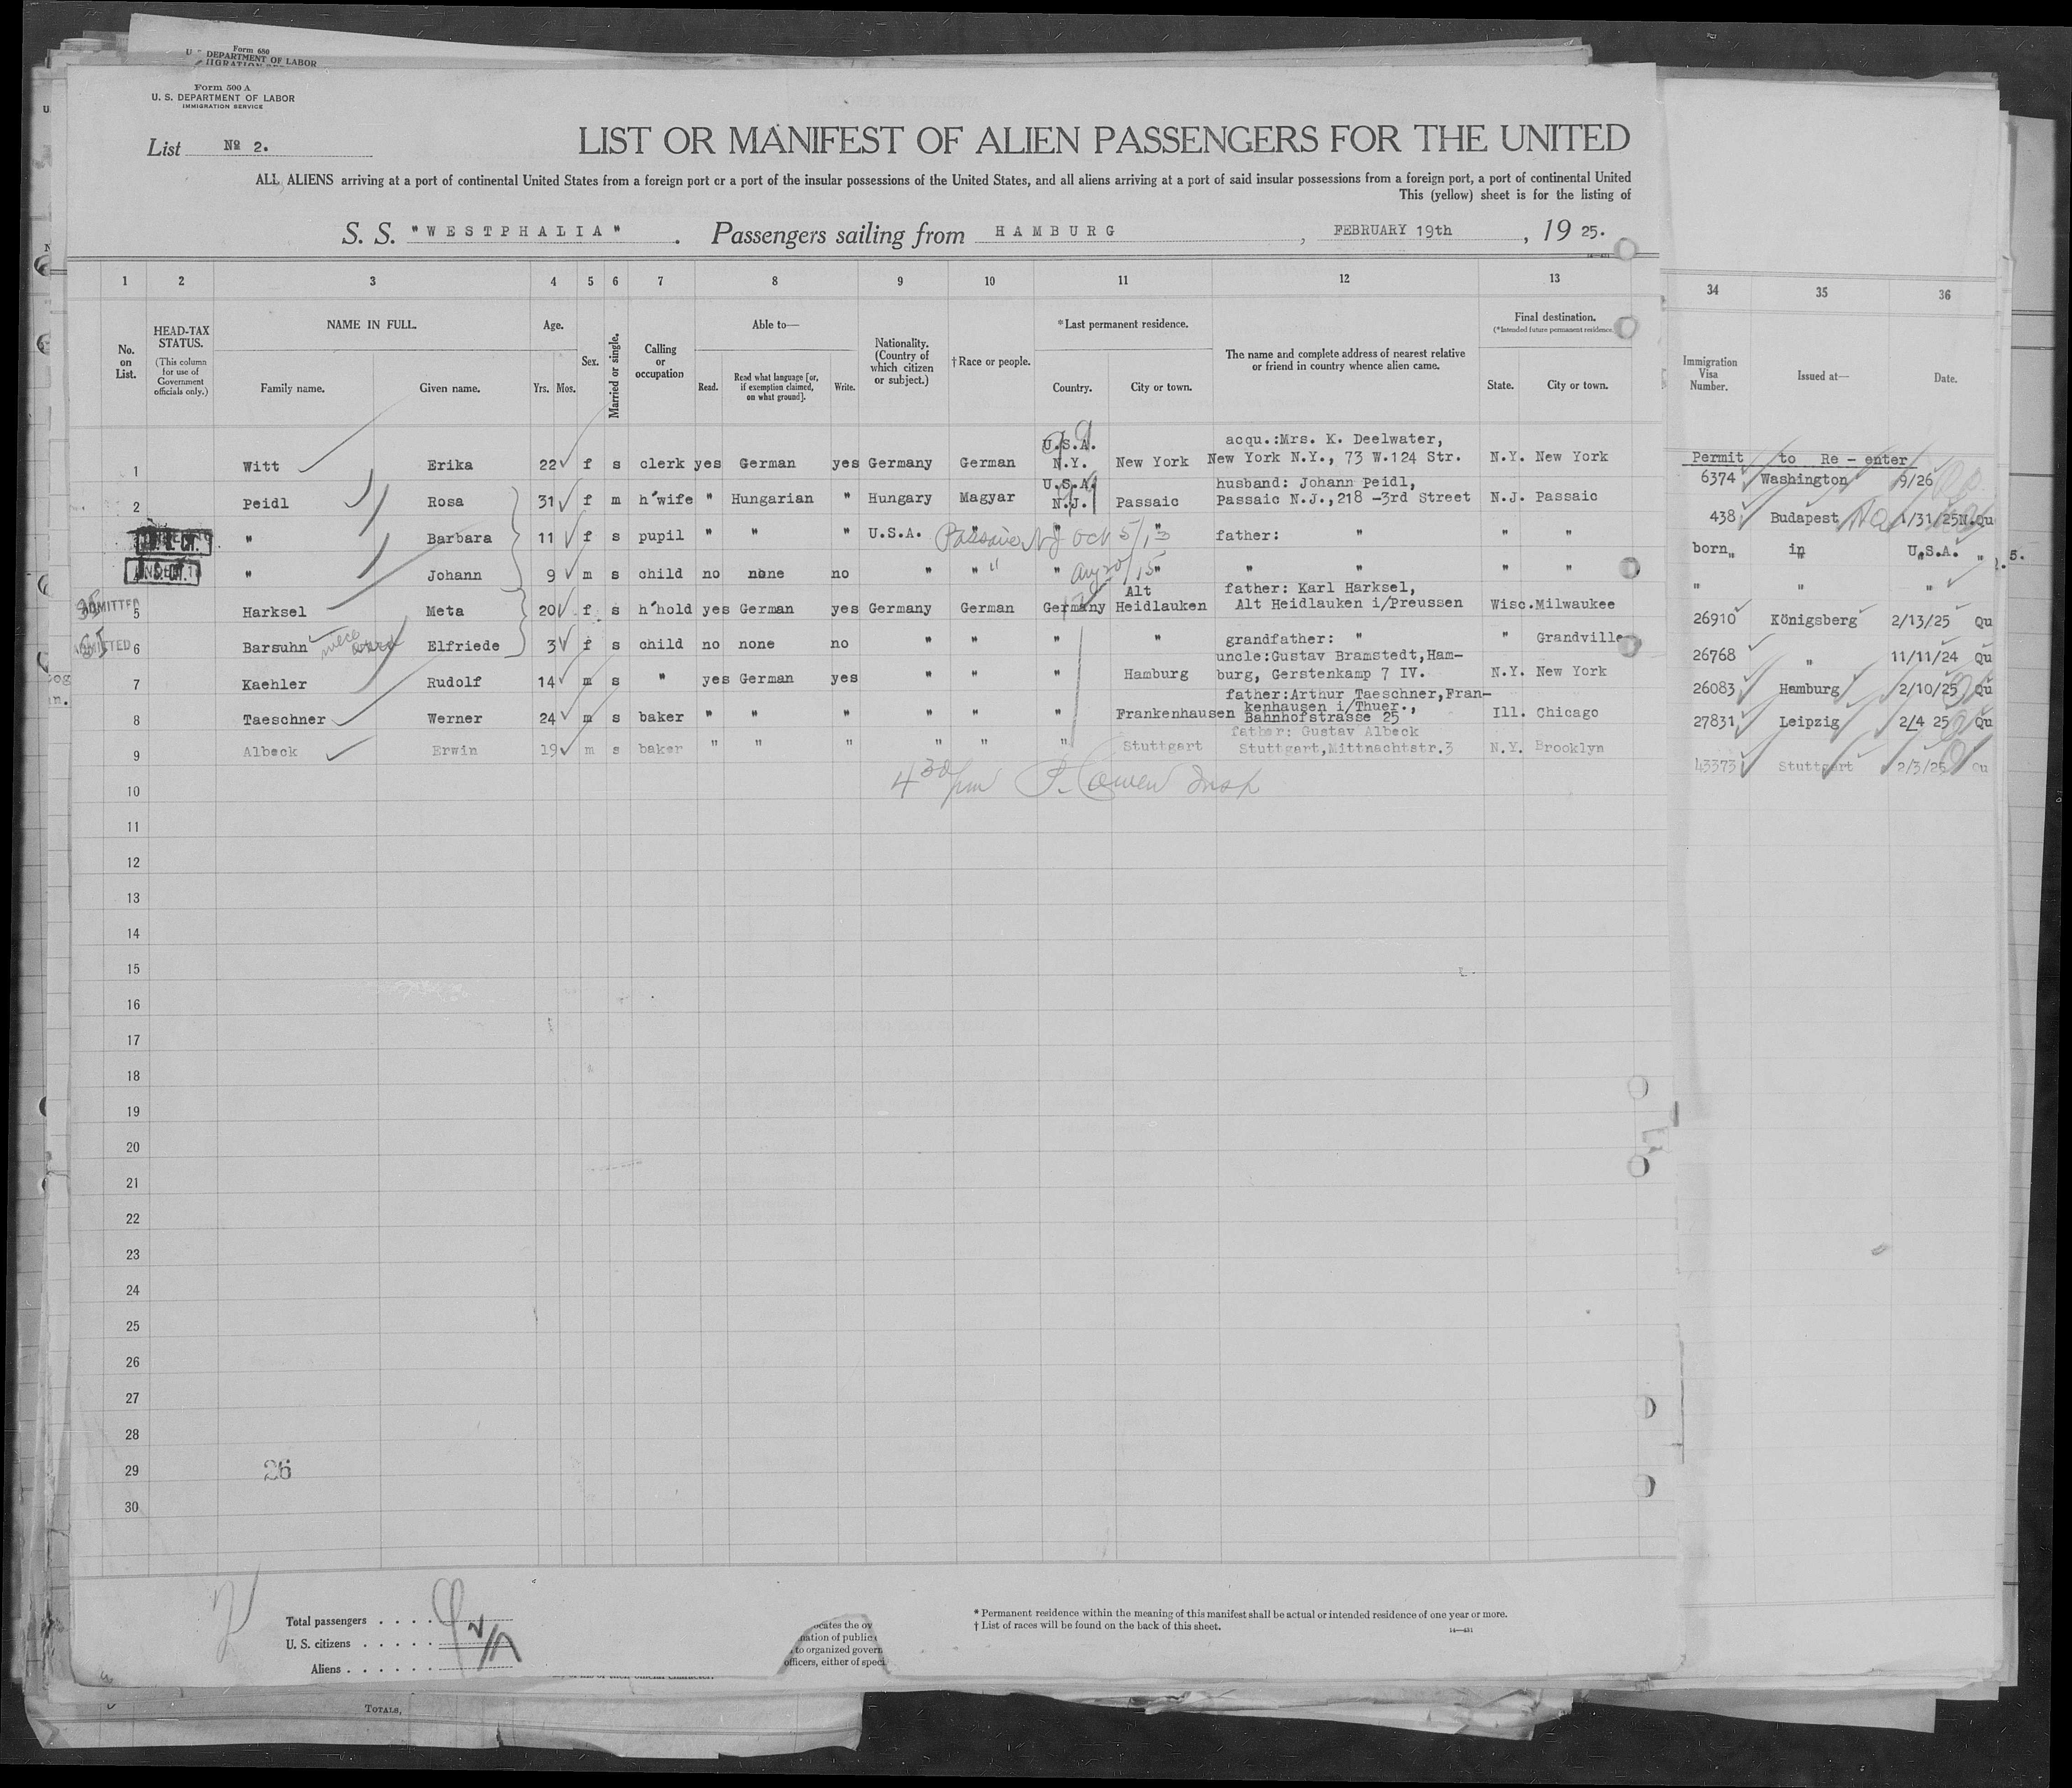 Form 680
U. S. DEPARTMENT OF LABOR
Form 500 A
U. S. DEPARTMENT OF LABOR
IMMIGRATION SERVICE
List Nº 2.
LIST OR MANIFEST OF ALIEN PASSENGERS FOR THE UNITED
ALL ALIENS arriving at a port of continental United States from a foreign port or a port of the insular possessions of the United States, and all aliens arriving at a port of said insular possessions from a foreign port, a port of continental United
This (yellow) sheet is for the listing of
S. S. "WESTPHALIA". Passengers sailing from HAMBURG, FEBRUARY 19th, 19 25.
1 2 3 4 5 6 7 8 9 10 11 12 13 34 35 36
No. on List.
HEAD-TAX STATUS.
(This column for use of Government officials only.)
NAME IN FULL.
Family name. Given name.
Age.
Yrs. Mos.
Sex.
Married or single.
Calling or occupation
Able to—
Read. Read what language [or, if exemption claimed, on what ground]. Write.
Nationality. (Country of which citizen or subject.)
†Race or people.
*Last permanent residence.
Country. City or town.
The name and complete address of nearest relative or friend in country whence alien came.
Final destination.
(*Intended future permanent residence.)
State. City or town.
Immigration Visa Number. Issued at— Date.
1 Witt Erika 22 f s clerk yes German yes Germany German U.S.A. N.Y. New York acqu.:Mrs. K. Deelwater, New York N.Y., 73 W.124 Str. N.Y. New York Permit to Re - enter 6374 Washington 9/26
2 Peidl Rosa 31 f m h'wife " Hungarian " Hungary Magyar U.S.A. N.J. Passaic husband: Johann Peidl, Passaic N.J.,218 -3rd Street N.J. Passaic 438 Budapest 1/31/25 N.Qu
" Barbara 11 f s pupil " " " U.S.A. " Passaic NJ Oct 5/13 " " father: " " " born in U.S.A.
" Johann 9 m s child no none no " " " Aug 20/15 " " " " " " " "
ADMITTED 5 Harksel Meta 20 f s h'hold yes German yes Germany German Germany Alt Heidlauken father: Karl Harksel, Alt Heidlauken i/Preussen Wisc. Milwaukee 26910 Königsberg 2/13/25 Qu
ADMITTED 6 Barsuhn niece Elfriede 3 f s child no none no " " " " grandfather: " " Grandville 26768 " 11/11/24 Qu
7 Kaehler Rudolf 14 m s " yes German yes " " " Hamburg uncle:Gustav Bramstedt,Ham- burg, Gerstenkamp 7 IV. N.Y. New York 26083 Hamburg 2/10/25 Qu
8 Taeschner Werner 24 m s baker " " " " " " Frankenhausen father:Arthur Taeschner,Fran- kenhausen i/Thuer., Bahnhofstrasse 25 Ill. Chicago 27831 Leipzig 2/4 25 Qu
9 Albeck Erwin 19 m s baker " " " " " " Stuttgart father: Gustav Albeck Stuttgart,Mittnachtstr.3 N.Y. Brooklyn 43373 Stuttgart 2/3/25 Qu
10 4 30 pm P. Cowen Insp
11
12
13
14
15
16
17
18
19
20
21
22
23
24
25
26
27
28
29 26
30
Total passengers . . . .
U. S. citizens . . . . .
Aliens . . . . . .
* Permanent residence within the meaning of this manifest shall be actual or intended residence of one year or more.
† List of races will be found on the back of this sheet.
14—431
ocates the ov
nation of public
to organized govern
officers, either of speci
TOTALS,